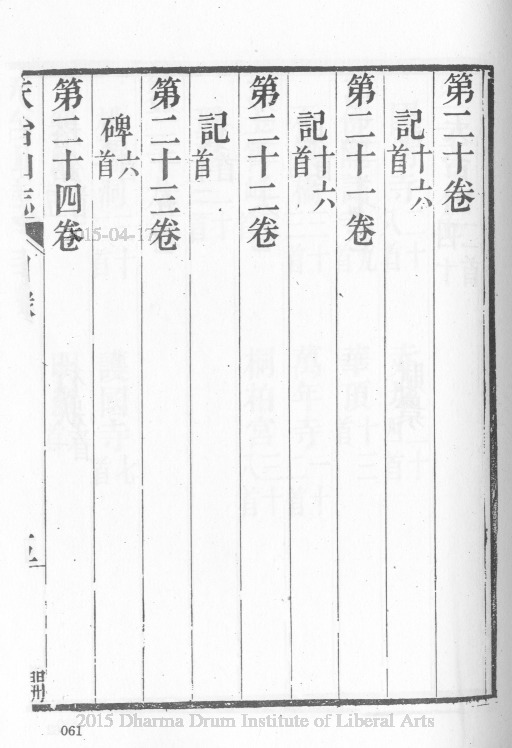 第二十卷
記十六首
第二十一卷
記十六首
第二十二卷
記首
第二十三卷
碑六首
第二十四卷
天台山志
目錄
061
2015-04-17
2015 Dharma Drum Institute of Liberal Arts